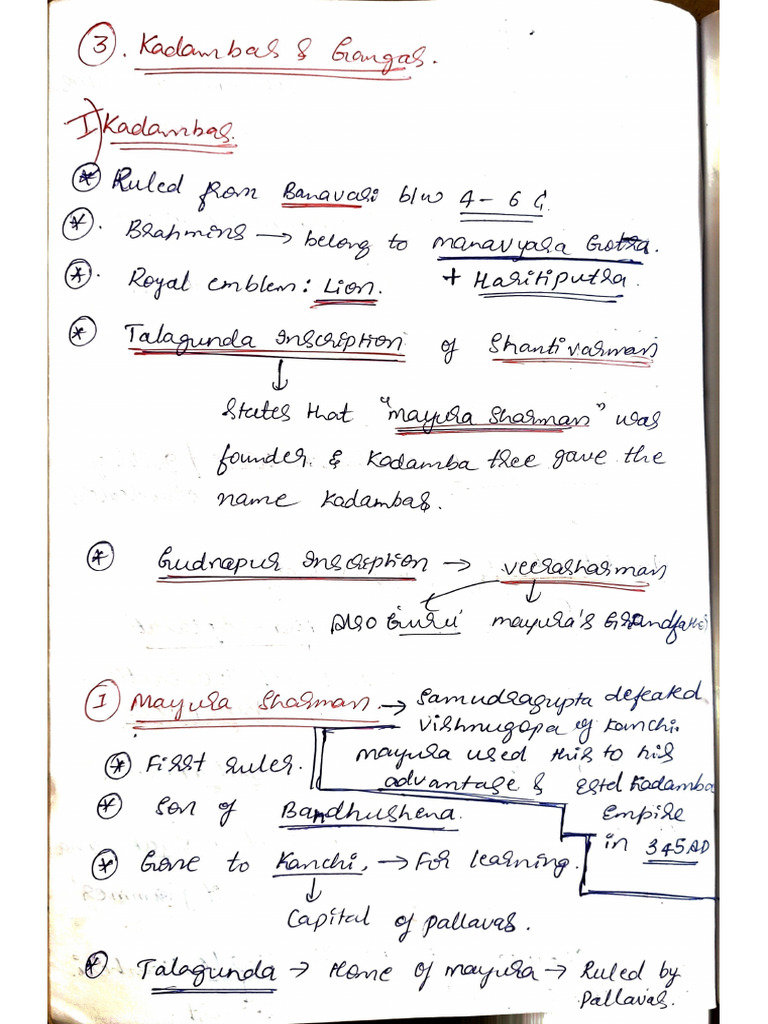 3. Kadambas & Gangas.
I) Kadambas.
* Ruled from Banavasi b/w 4 – 6 C.
* Brahmins → belong to Manavyasa Gotra.
+ Haritiputra.
* Royal emblem: Lion.
* Talagunda Inscription of Shantivarman
↓
states that "Mayura Sharman" was
founder & Kadamba tree gave the
name Kadambas.
* Gudnapur Inscription → Veerasharman
Also Guru Mayura's Grandfather
1 Mayura Sharman. → Samudragupta defeated
Vishnugopa of Kanchi.
Mayura used this to his
advantage & Estd Kadamba
Empire
in 345AD
* First ruler.
* Son of Bandhushena.
* Gone to Kanchi, → For learning.
↓
Capital of Pallavas.
* Talagunda → Home of Mayura → Ruled by
Pallavas.